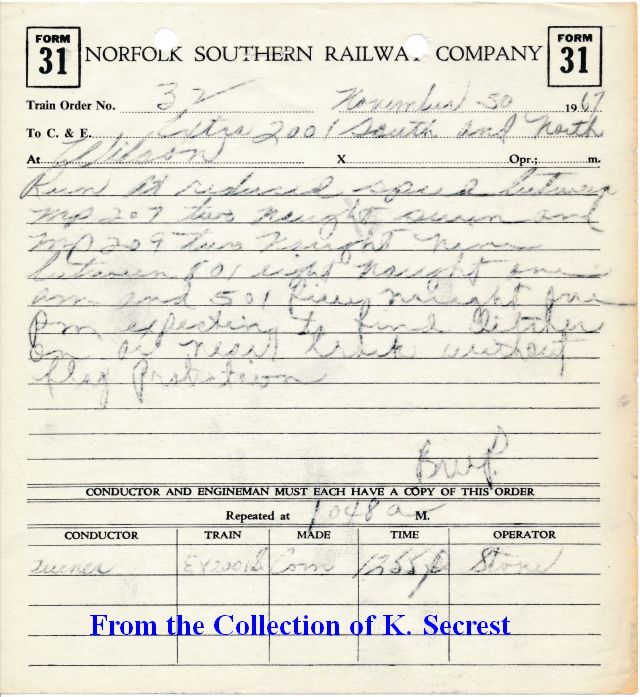 FORM 31
NORFOLK SOUTHERN RAILWAY COMPANY
FORM 31
Train Order No. 32 November 30 1967
To C. & E. Extra 2001 South and North
At Wilson X Opr.; m.
Run at reduced speed between
MP 207 two naught seven and
MP 209 two naught nine
between 801 eight naught one
am and 501 five naught one
Pm expecting to find Ditcher
on or near track without
flag Protection
BWP.
CONDUCTOR AND ENGINEMAN MUST EACH HAVE A COPY OF THIS ORDER
Repeated at 1048 a M.
CONDUCTOR TRAIN MADE TIME OPERATOR
Turner EX2001S Com 1255p Stone
From the Collection of K. Secrest